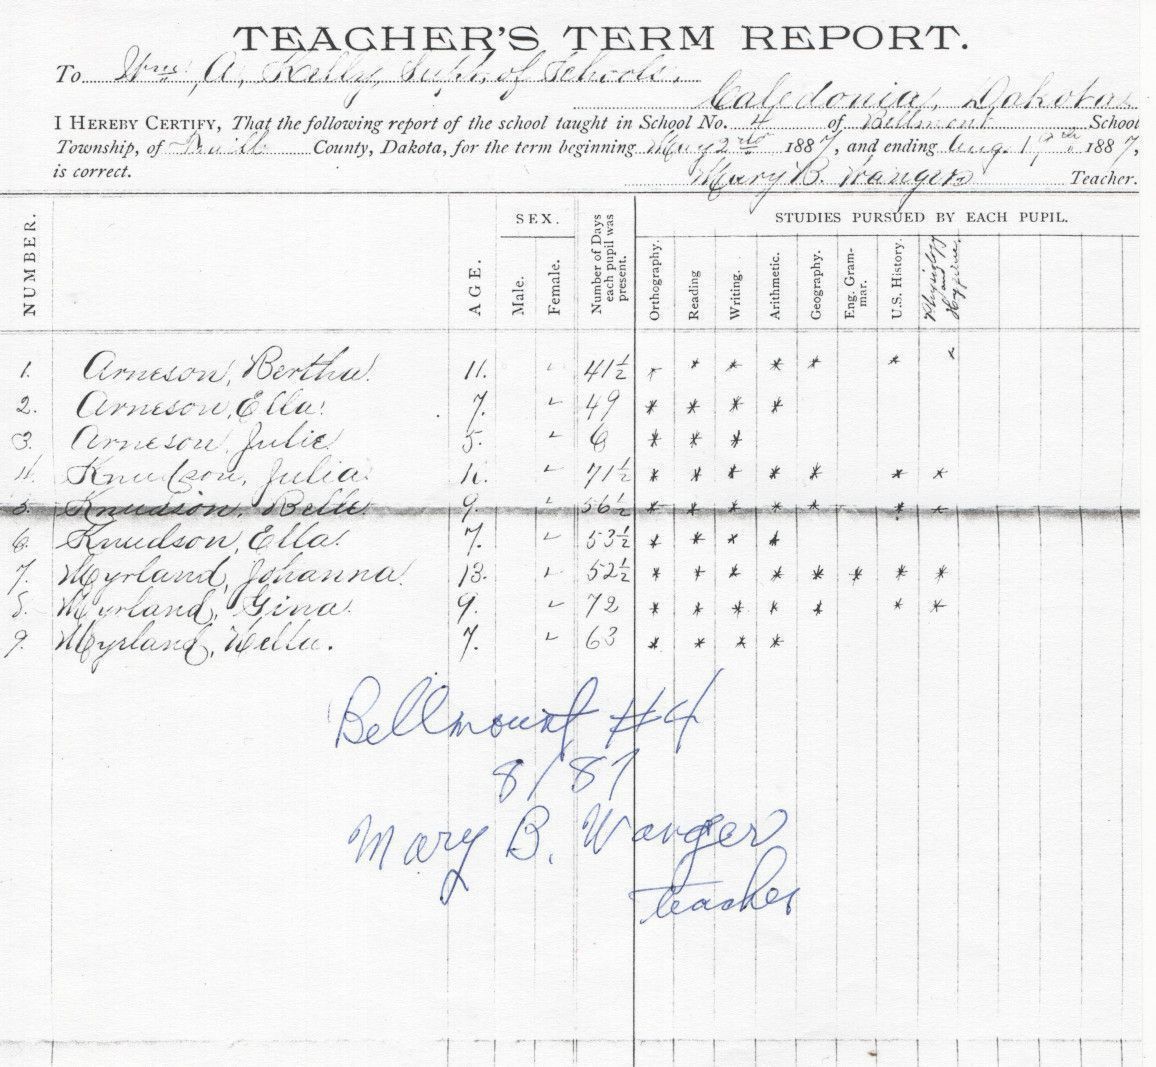 TEACHER'S TERM REPORT.
To Wm. A. Kelly, Supt. of Schools.
Caledonia, Dakota
I HEREBY CERTIFY, That the following report of the school taught in School No. 4 of Bellmont School
Township, of County, Dakota, for the term beginning May 2nd 1887, and ending Aug. 1887,
is correct. Mary B. Wanger Teacher.
NUMBER. AGE. SEX. Male. Female. Number of Days each pupil was present. STUDIES PURSUED BY EACH PUPIL.
Orthography. Reading Writing. Arithmetic. Geography. Eng. Grammar. U.S. History. Physiology and Hygiene.
1. Arneson, Bertha. 11. ✓ 41½ * * * * * * *
2. Arneson, Ella. 7. ✓ 49 * * * *
3. Arneson, Julie 5. ✓ 6 * * *
4. Knudson, Julia. 11. ✓ 71½ * * * * * * *
5. Knudson, Belle 9. ✓ 56½ * * * * * * *
6. Knudson, Ella. 7. ✓ 53½ * * * *
7. Myrland, Johanna. 13. ✓ 52½ * * * * * * * *
8. Myrland, Gina. 9. ✓ 72 * * * * * * *
9. Myrland, 7. ✓ 63 * * * *
Bellmount #4
8/87
Mary B. Wanger
teacher